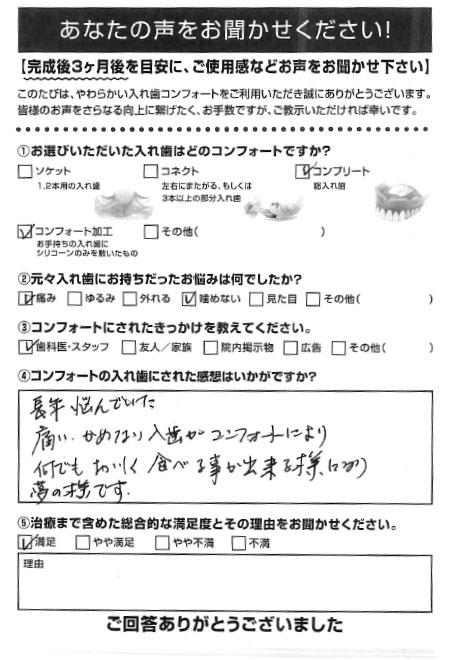 あなたの声をお聞かせください!
【完成後3ヶ月後を目安に、ご使用感などお声をお聞かせ下さい】
このたびは、やわらかい入れ歯コンフォートをご利用いただき誠にありがとうございます。
皆様のお声をさらなる向上に繋げたく、お手数ですが、ご教示いただければ幸いです。
①お選びいただいた入れ歯はどのコンフォートですか?
□ソケット □コネクト ☑コンプリート
1,2本用の入れ歯 左右にまたがる、もしくは 総入れ歯
3本以上の部分入れ歯
☑コンフォート加工 □その他( )
お手持ちの入れ歯に
シリコーンのみを敷いたもの
②元々入れ歯にお持ちだったお悩みは何でしたか?
☑痛み □ゆるみ □外れる ☑噛めない □見た目 □その他( )
③コンフォートにされたきっかけを教えてください。
☑歯科医・スタッフ □友人/家族 □院内掲示物 □広告 □その他( )
④コンフォートの入れ歯にされた感想はいかがですか?
長年悩んでいた
痛い、かめない入歯がコンフォートにより
何でもおいしく食べる事が出来る様になり
夢の様です.
⑤治療まで含めた総合的な満足度とその理由をお聞かせください。
☑満足 □やや満足 □やや不満 □不満
理由
ご回答ありがとうございました